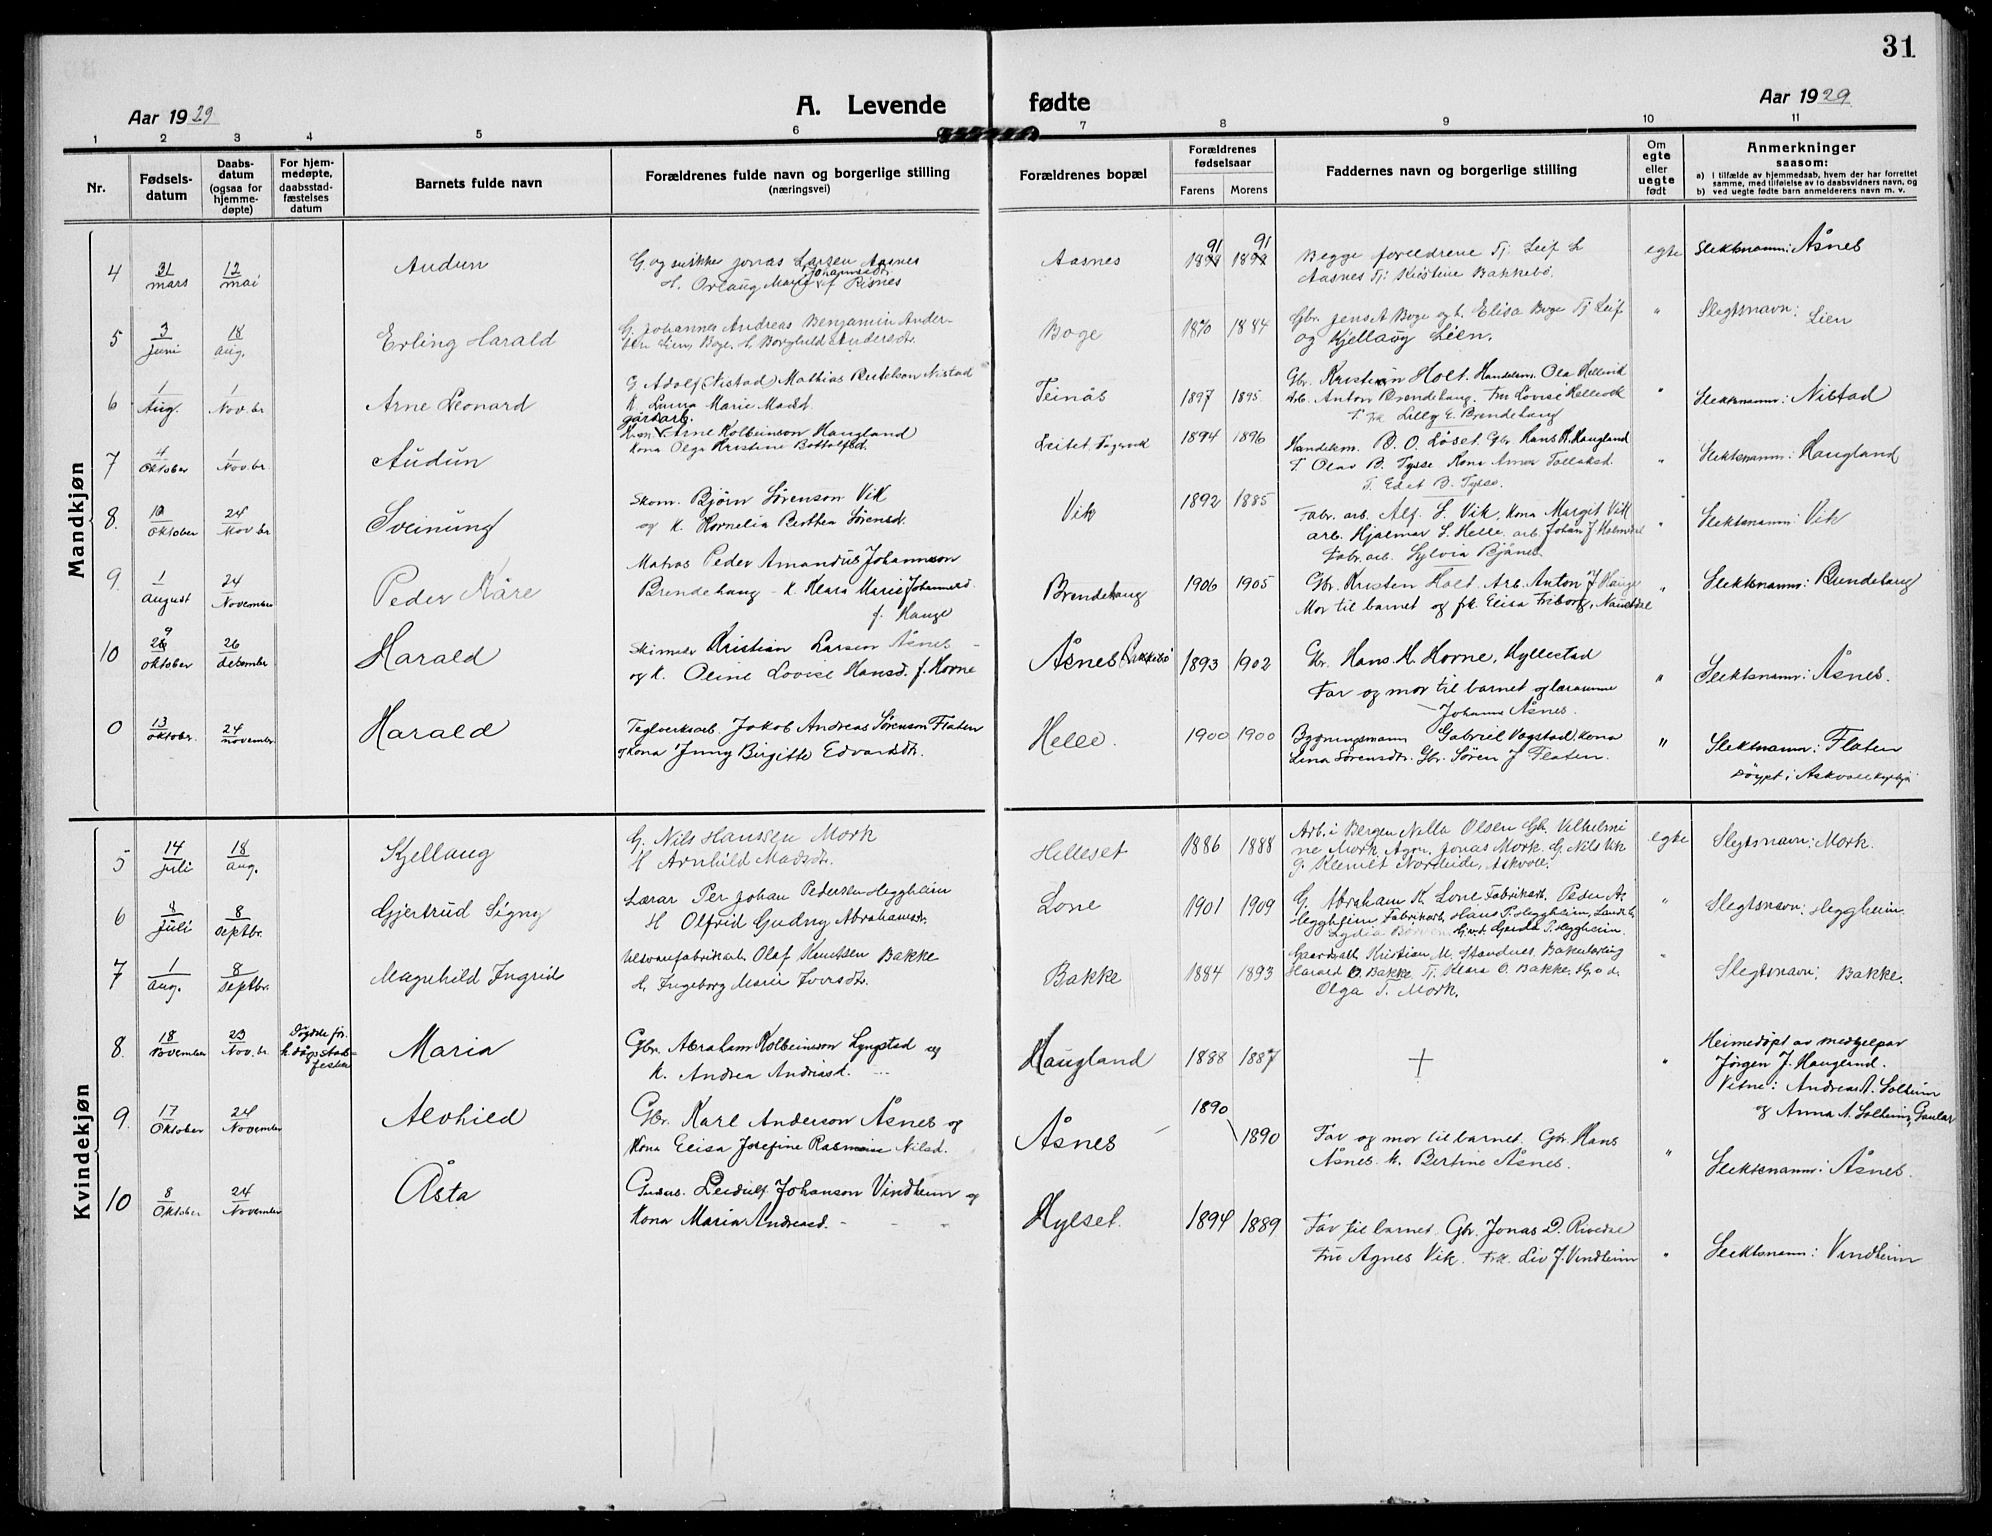 31
Aar 1929
A. Levende fødte
Aar 1929
1 2 3 4 5 6 7 8 9 10 11
Nr.
Fødsels-
datum
Daabs-
datum
(ogsaa for
hjemme-
døpte)
For hjem-
medøpte,
daabsstad-
fæstelses
datum
Barnets fulde navn
Forældrenes fulde navn og borgerlige stilling
(næringsvei)
Forældrenes bopæl
Forældrenes
fødselsaar
Farens Morens
Faddernes navn og borgerlige stilling
Om
egte
eller
uegte
født
Anmerkninger
saasom:
a) I tilfælde av hjemmedaab, hvem der har forrettet
samme, med tilføielse av to daabsvidners navn, og
b) ved uegte fødte barn anmelderens navn m. v.
Mandkjøn
4 31/mars 12/mai Audun
G. og snikker Jonas Larsen Aasnes
H. Orlaug Marie Johannesdtr. f. Risnes
Aasnes 91 91
Begge foreldrene Tj. Leif L
Aasnes Tj. Kristine Bakkebø.
egte Slektsnamn: Åsnes
5 3/juni 18/aug. Erling Harald
G. Johannes Andreas Benjamin Ander-
sen Lien, Boge. H. Borghild Andersdtr.
Boge 1870 1884
Gbr. Jens A Boge og h. Elisa Boge Tj Leif
og Kjellaug Lien.
" Slegtsnavn: Lien
6 1/Aug. 1/Nov.br Arne Leonard
G Adolf (Nistad) Mathias Nistad
K. Laura Marie Madsd.
Teinås 1897 1895
Gbr. Kristian Holt. Handelsm. Ola Hellevik
Arb. Anton Brendehaug. Fru Lovise Hellevik
Frk Lilly E. Brendehaug
" Slektsnamn: Nistad
7 4/Oktober 1/Nov.br Audun
gårdarb.
Arne Kolbeinson Haugland
Kona Olga Kristine Bottolfsd.
Leitet, Fagervik 1894 1896
Handelsm. B. O. Løset. Gbr. Hans K. Haugland
T. Olav B. Tysse Kona Anna Tollaksd.
T. Edit B. Tysse.
" Slektsnamn: Haugland
8. 10/Oktober 24/Nov br Sveinung
Skom. Bjørn Sørenson Vik
og K. Kornelia Berthea Sørensd.
Vik 1892 1885
Fabr. arb. Alf S. Vik, Kona Margit Vik
arb. Hjalmar S. Helle, arb. Johan J Holmedal
Fabr. arb. Sylvia Bjånes
" Slektsnamn: Vik
9. 1/August 24/November Peder Kåre
Matros Peder Amandus Johannson
Brendehaug - K. Klara Marie Johannesd.
f. Hauge
Brendehaug 1906 1905
Gbr. Kristen Holt. Arb. Anton J Hauge
Mor til barnet og frk. Elisa Friborg, Naustdal
" Slektsnamn: Brendehaug
10 29/Oktober 26/desember Harald
Skinnar Kristian Larson Åsnes -
og K. Oline Lovise Hansd. f. Horne
Åsnes (Bakkebø 1893 1902
Gbr. Hans H. Horne, Hyllestad
Far og mor til barnet og lerarinne
Johanne Åsnes.
" Slektsnamn: Åsnes.
0 13/Oktobr. 24/november Harald
Teglverksarb Jakob Andreas Sørenson Flaten
og Kona Jenny Birgitte Edvardsdtr.
Helle. 1900 1900
Bygningsmann Gabriel Vagstad, kona
Lina Sørensdtr. Gbr. Søren J Flaten.
" Slektsnamn: Flaten
Døypt i Askvoll kyrkje
Kvindekjøn
5 14/juli 18/aug. Kjellaug
G. Nils Hanssen Mork
H Arnhild Madsdtr.
Helleset 1886 1888
Arb. i Bergen Nella Olsen Gb. Vilhelmi
ne Mork Agn. Jonas Mork. G. Nils Vik
G. Klemet Norleide, Askvoll.
egte Slegtsnavn: Mork.
6 8/juli 8/septbr. Gjertrud Signy
Lærar Per Johan Pedersen Heggheim
H Olfrid Gudny Abrahamsdtr.
Lone 1901 1909
G. Abraham K. Lone Fabrikarb. Peder As.
Heggheim Fabrikarb. Hans P. Heggheim,
Lydia Gerda P. Heggheim.
" Slegtsnavn: Heggheim.
7 1/aug. 8/septbr. Magnhild Ingrid
Uldvarefabrikkarb. Olaf Knutsen Bakke
H. Ingeborg Marie Iversdtr.
Bakke 1884 1893
Kristian M. Standnes Bakerlærling
Harald O Bakke Tj. Klara O. Bakke,
Olga T. Mork.
" Slegtsnavn: Bakke.
8. 18/November 23/Nov.br Døydde fyr
k.dåpsstad-
festin
Maria
Gbr. Abraham Kolbeinson Lyngstad og
K. Andrea Andreasd.
Haugland 1888 1887
+
" Heimedøpt av medhjelpar
Jørgen J. Haugland.
Vitne: Andreas A. Solheim
og Anna A. Solheim, Gaular
9. 17/Oktober 24/November Alvhild
Gbr. Karl Anderson Åsnes og
Kona Elisa Josefine Rasmine Nilsd.
Åsnes 1890 1890
Far og mor til barnet. Gbr. Hans
Åsnes. K. Bertine Åsnes.
" Slektsnamn: Åsnes.
10 8/Oktober 24/November Åsta
Leidulf Johanson Vindheim og
Kona Maria Andreasd.
Hylset. 1894 1889
Far til barnet. Gbr. Jonas D. Rivedal
Fru Agnes Vik. Frk. Liv J. Vindheim
" Slektsnamn: Vindheim